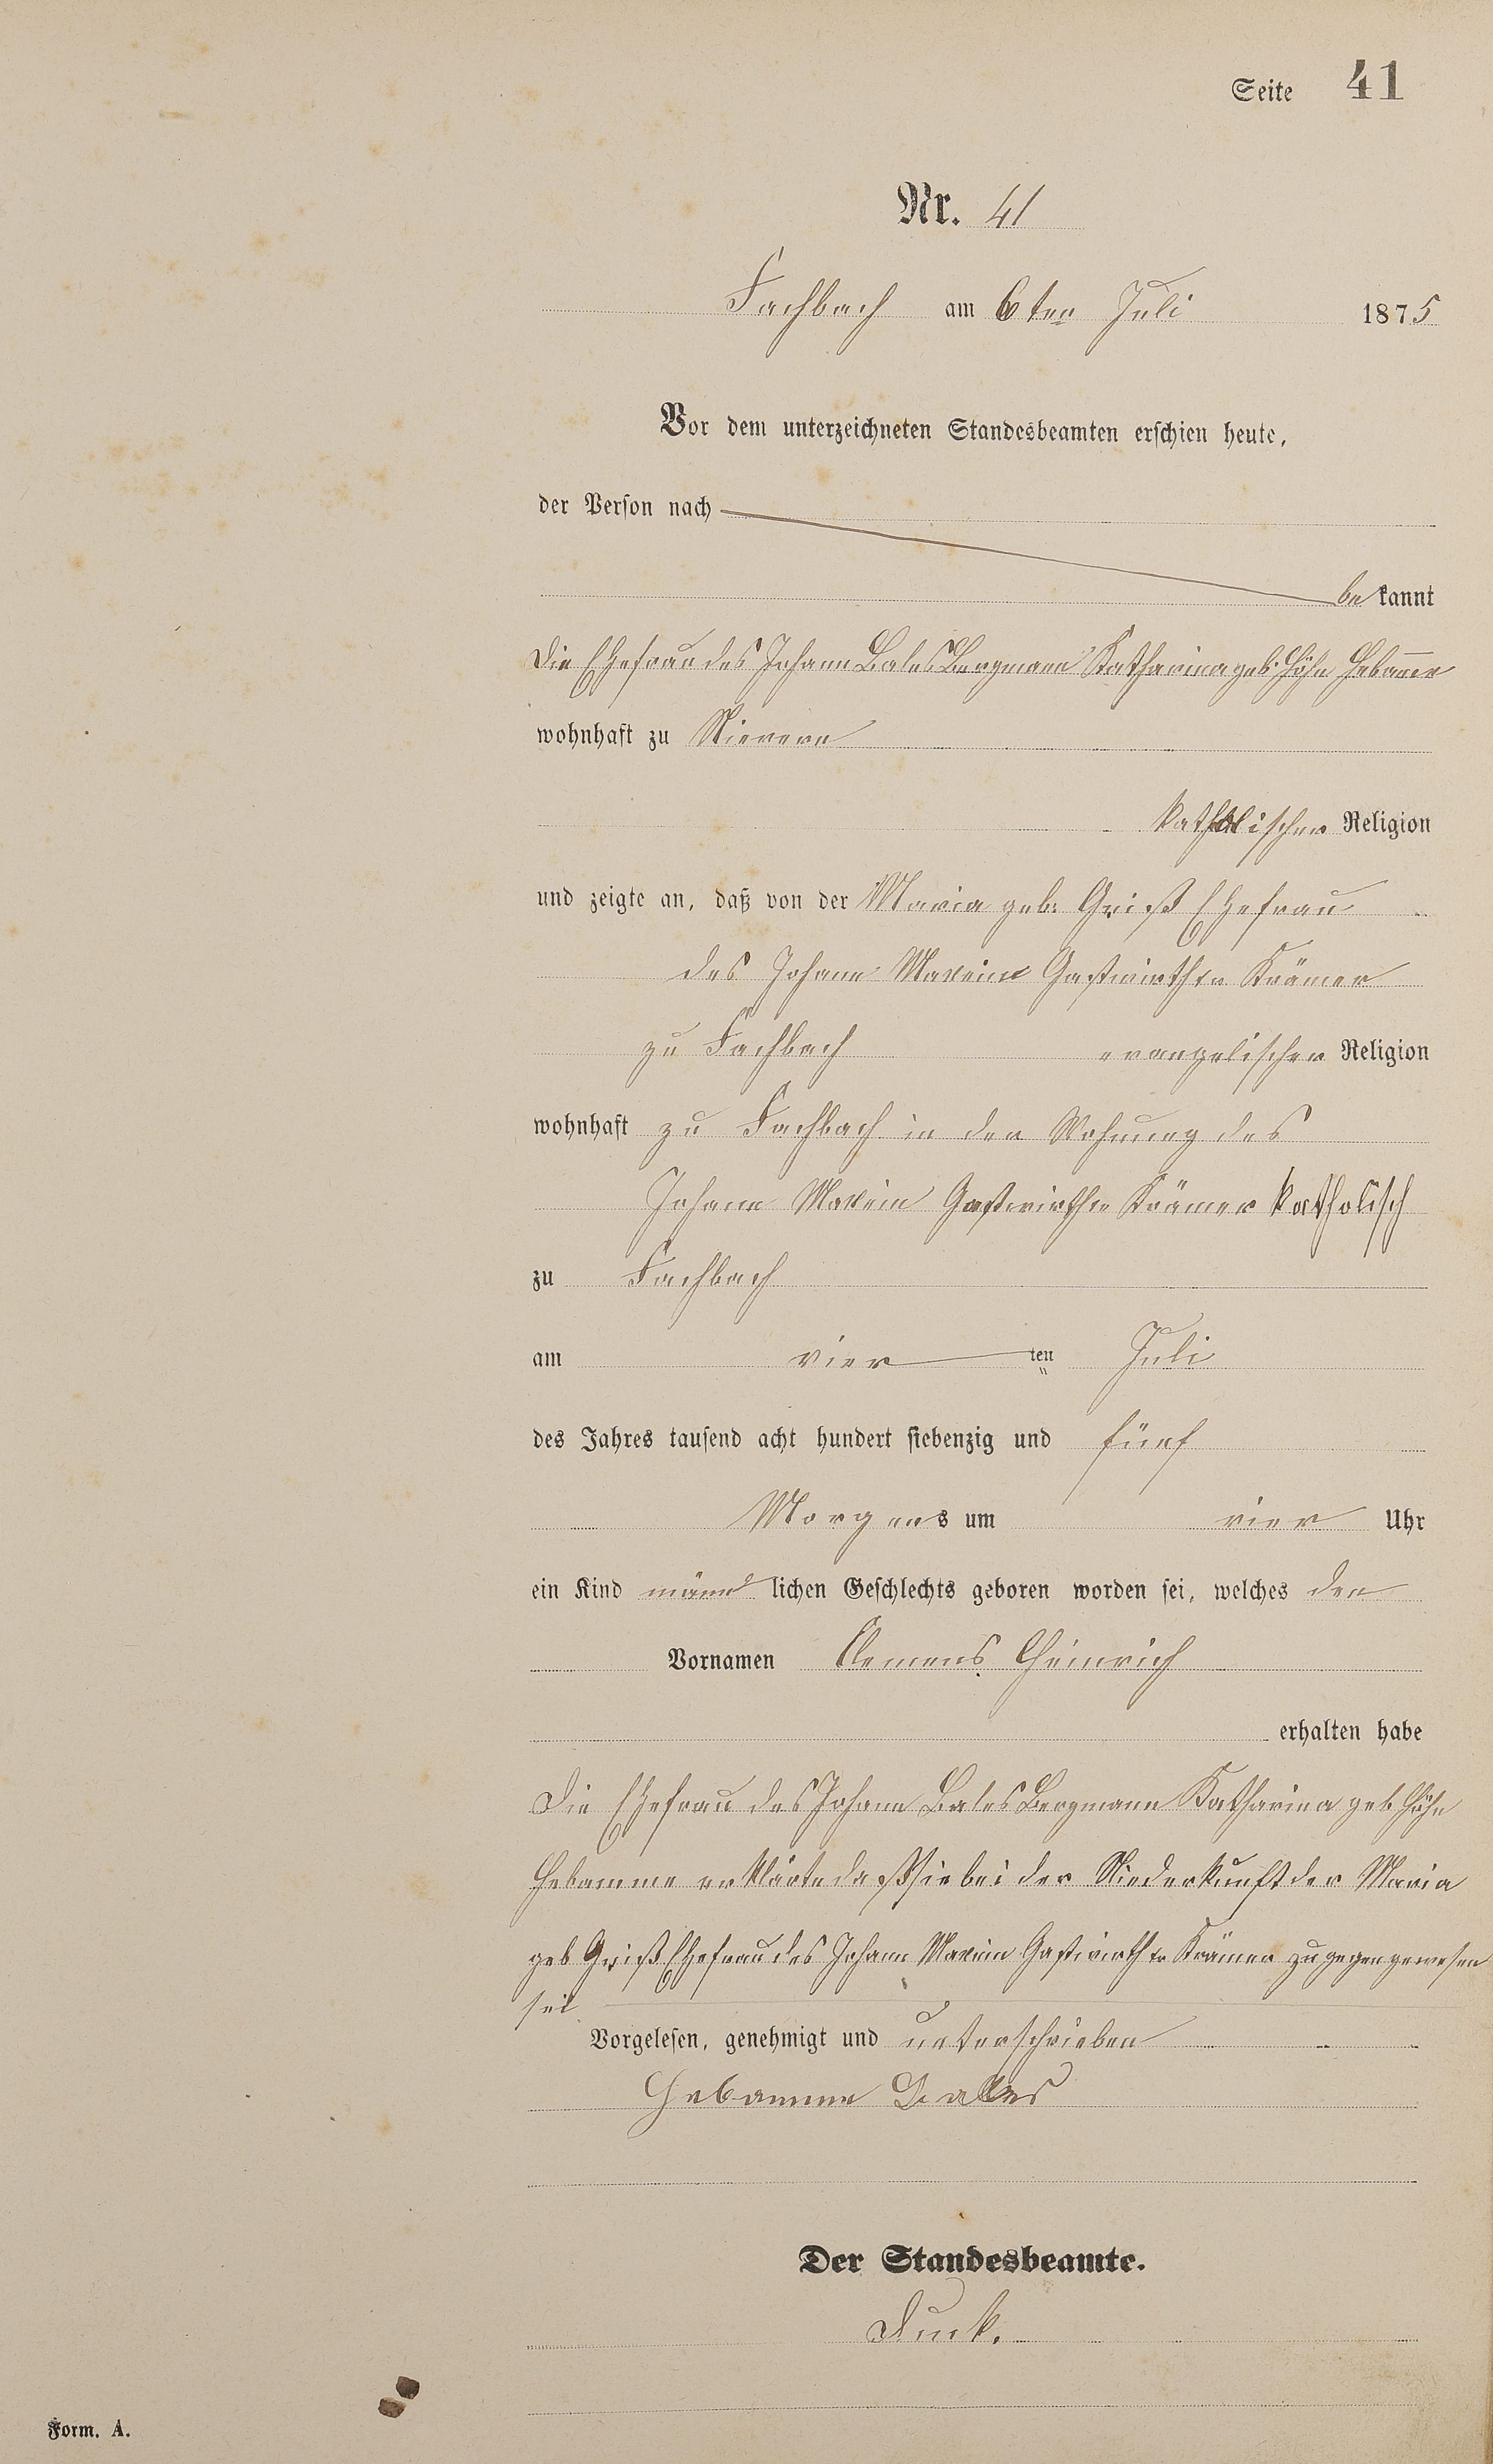 Seite 41
Nr. 41
Fachbach am 6ten Juli 1875
Vor dem unterzeichneten Standesbeamten erschien heute,
der Person nach
bekannt
die Ehefrau des Johann Bales Bergmann Katharina geb. Höhn Hebamme
wohnhaft zu Nievern
katholischer Religion
und zeigte an, daß von der Maria geb. Grieß Ehefrau
des Johann Maxein Gastwirth u Krämer
zu Fachbach evangelischer Religion
wohnhaft zu Fachbach in der Wohnung des
Johann Maxein Gastwirth u Krämer katholisch
zu Fachbach
am vier ten Juli
des Jahres tausend acht hundert siebenzig und fünf
Morgens um vier Uhr
ein Kind männlichen Geschlechts geboren worden sei, welches den
Vornamen Clemens Heinrich
erhalten habe
die Ehefrau des Johann Bales Bergmann Katharina geb Höhn
Hebamme erklärte daß sie bei der Niederkunft der Maria
geb Grieß Ehefrau des Johann Maxein Gastwirth u Krämer zugegen gewesen
sei
Vorgelesen, genehmigt und unterschrieben
Hebamme Bales
Der Standesbeamte.
Form. A.